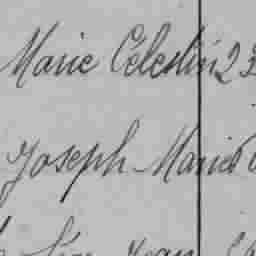 Marie Celestin 23
Joseph Marie
Jean